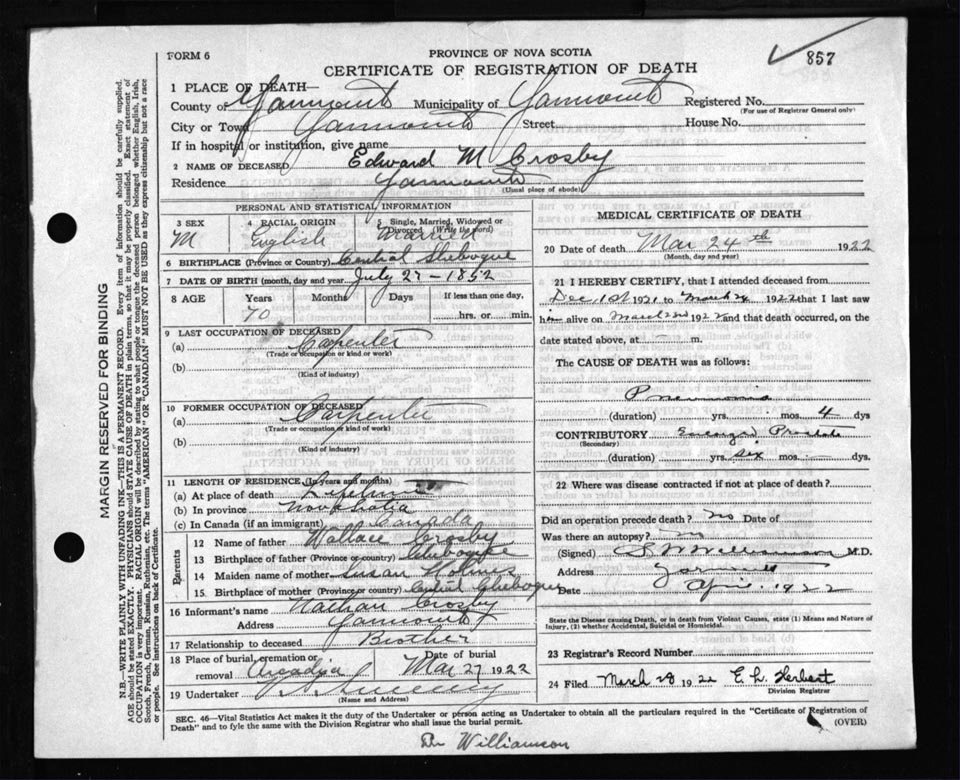 857
FORM 6
PROVINCE OF NOVA SCOTIA
CERTIFICATE OF REGISTRATION OF DEATH
1 PLACE OF DEATH—
County of Yarmouth Municipality of Yarmouth Registered No.
(For use of Registrar General only)
City or Town Yarmouth Street House No.
If in hospital or institution, give name
2 NAME OF DECEASED Edward M Crosby
Residence Yarmouth
(Usual place of abode)
PERSONAL AND STATISTICAL INFORMATION
3 SEX 4 RACIAL ORIGIN 5 Single, Married, Widowed or Divorced (Write the word)
M English Married
6 BIRTHPLACE (Province or Country) Central Chebogue
7 DATE OF BIRTH (month, day and year) July 27 - 1852
8 AGE Years Months Days If less than one day,
70 hrs. or min.
9 LAST OCCUPATION OF DECEASED
(a) Carpenter
(Trade or occupation or kind or work)
(b)
(Kind of industry)
10 FORMER OCCUPATION OF DECEASED
(a) Carpenter
(Trade or occupation or kind of work)
(b)
(Kind of industry)
11 LENGTH OF RESIDENCE (In years and months)
(a) At place of death
(b) In province Nova Scotia
(c) In Canada (if an immigrant) Canada
Parents
12 Name of father Wallace Crosby
13 Birthplace of father (Province or country) Chebogue
14 Maiden name of mother Susan Holmes
15 Birthplace of mother (Province or country) Central Chebogue
16 Informant's name Nathan Crosby
Address Yarmouth
17 Relationship to deceased Brother
18 Place of burial, cremation or removal Arcadia Date of burial Mar 27 1922
19 Undertaker
(Name and Address)
MEDICAL CERTIFICATE OF DEATH
20 Date of death Mar 24th 1922
(Month, day and year)
21 I HEREBY CERTIFY, that I attended deceased from
Dec 1st 1921 to March 24 1922 that I last saw
him alive on March 1922 and that death occurred, on
date stated above, at m.
The CAUSE OF DEATH was as follows:
Pneumonia
(duration) yrs. mos. 4 dys
CONTRIBUTORY Prostate
(Secondary)
(duration) yrs six mos. dys
22 Where was disease contracted if not at place of death?
Did an operation precede death? no Date of
Was there an autopsy? no
(Signed) S W Williamson M.D.
Address Yarmouth
Date Apr 1922
State the Disease Causing Death, or in death from Violent Causes, state (1) Means and Nature of Injury, (2) whether Accidental, Suicidal or Homicidal.
23 Registrar's Record Number
24 Filed March 28 1922 E L Herbert
Division Registrar
SEC. 46—Vital Statistics Act makes it the duty of the Undertaker or person acting as Undertaker to obtain all the particulars required in the "Certificate of Registration of
Death" and to fyle the same with the Division Registrar who shall issue the burial permit.
(OVER)
Dr Williamson
MARGIN RESERVED FOR BINDING
N.B.—WRITE PLAINLY WITH UNFADING INK—THIS IS A PERMANENT RECORD. Every item of information should be carefully supplied.
AGE should be stated EXACTLY. PHYSICIANS should STATE CAUSE OF DEATH in plain terms, so that it may be properly classified. Exact statement of
OCCUPATION is very important. RACIAL ORIGIN will be described by stating to what people or tongue the deceased person belonged whether English, Irish,
Scotch, French, German, Russian, Ruthenian, etc. The terms "AMERICAN" OR "CANADIAN" MUST NOT BE USED as they express citizenship but not a race
or people. See instructions on back of Certificate.